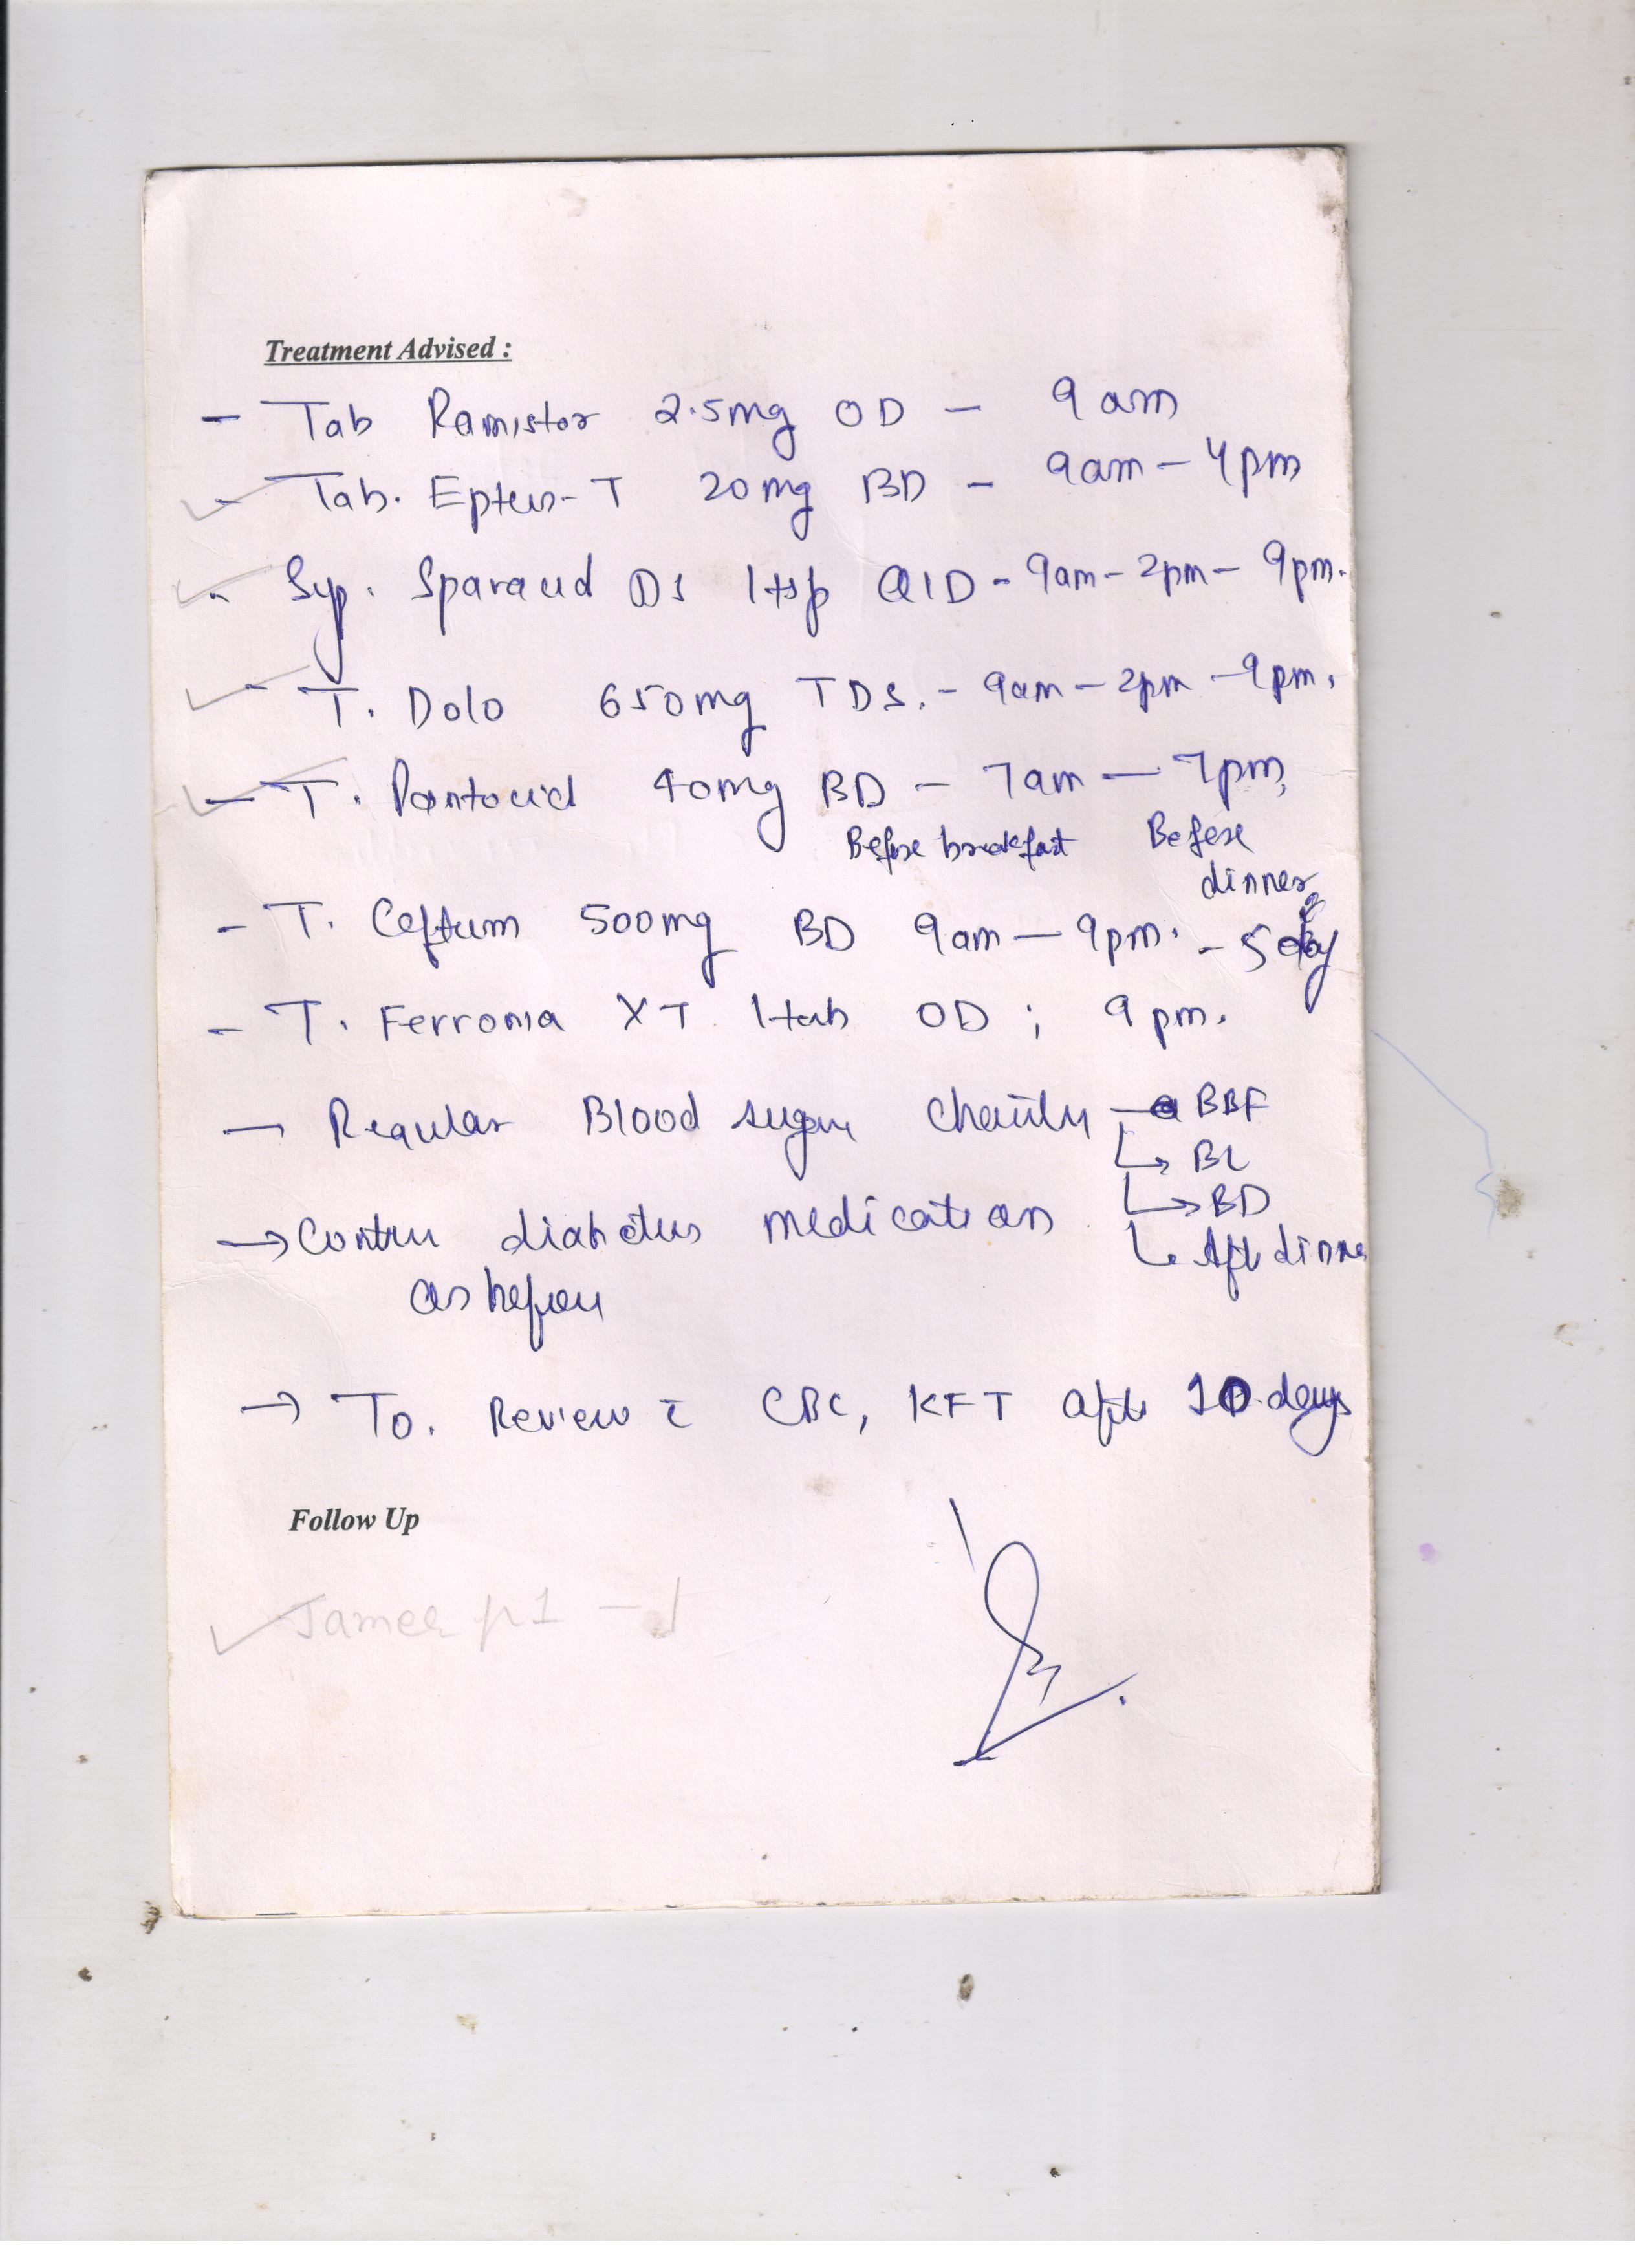 Treatment Advised :
- Tab Ramistar 2.5mg OD - 9 am
- Tab. Eptus-T 20mg BD - 9am - 4pm
- Syp. Sparacid DS 1tsp QID - 9am - 2pm - 9pm.
- T. Dolo 650mg TDS. - 9am - 2pm - 9pm.
- T. Pantocid 40mg BD - 7am - 7pm
Before breakfast Before
dinner
- T. Ceftum 500mg BD 9am - 9pm. - 5 day
- T. Ferronia XT 1tab OD ; 9pm.
- Regular Blood sugar → BBF
→ BL
→ BD
→ diabetes medication
as before
→ To. Review c̄ CBC, KFT after 10 days
Follow Up